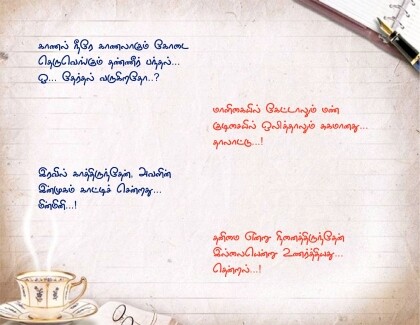 காணல் நீரே காணலாகும் கோடை
தெருவெங்கும் தண்ணீர் பந்தல்...
ஓ... தேர்தல் வருகிறதோ..?
மாளிகையில் கேட்டாலும் மண்
குடிசையில் ஒலித்தாலும் சுகமானது...
தாலாட்டு...!
இரவில் காத்திருந்தேன், அவளின்
இன்முகம் காட்டிச் சென்றது...
மின்மினி...!
தனிமை என்று நினைத்திருந்தேன்
இல்லையென்று உணர்த்தியது...
தென்றல்...!